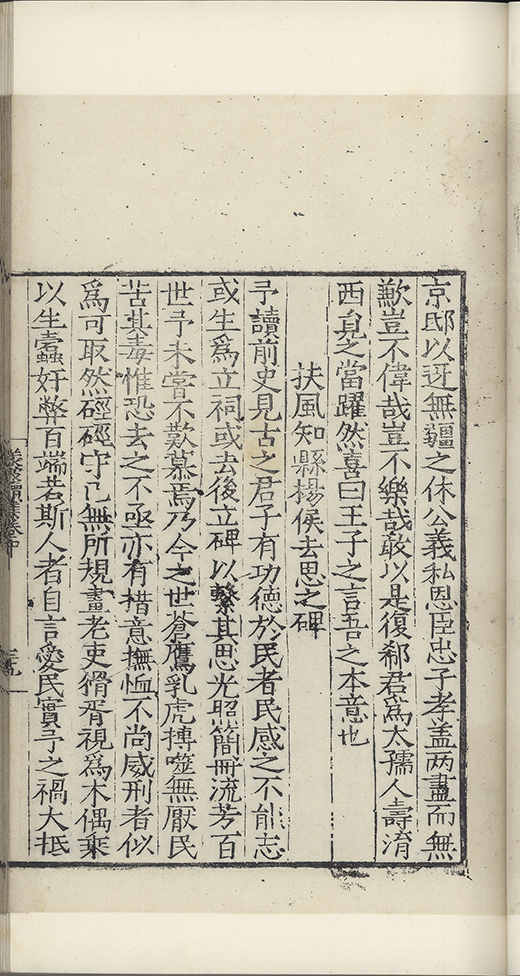 京邸以迓無疆之休公義私恩臣忠子孝盖两盡而無
歉豈不偉哉豈不樂哉敢以是復郗君為太孺人壽淯
西見之當躍然喜曰王子之言吾之本意也
扶風知縣楊侯去思之碑
予讀前史見古之君子有功德於民者民感之不能忘
或生為立祠或去後立碑以繫其思光照簡冊流芳百
世予未嘗不歎慕焉乃今之世蒼鷹乳虎搏噬無厭民
苦其毒惟恐去之不亟亦有措意撫恤不尚威刑者似
為可取然硜硜守己無所規畫老吏猾胥視為木偶乗
以生蠹奸弊百端若斯人者自言愛民實予之禍大抵